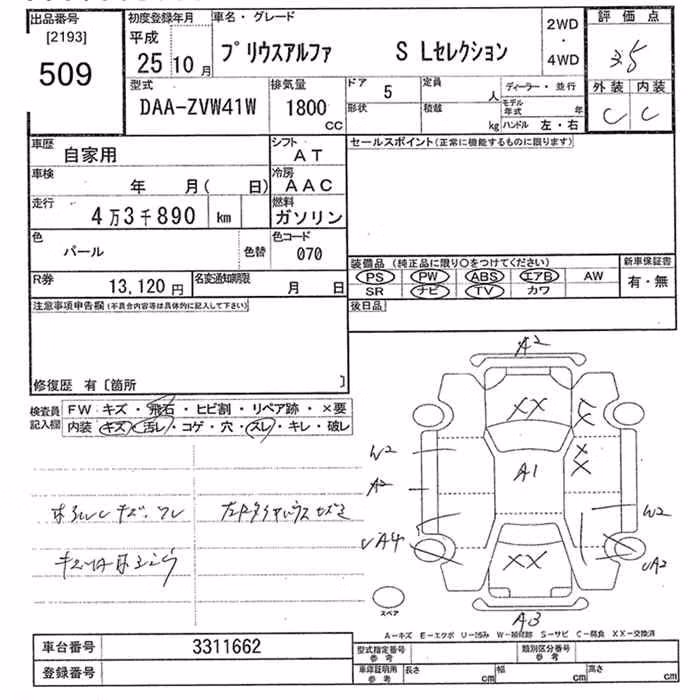 出品番号 初度登録年月 車名・グレード 2WD ・ 4WD 評価点
[2193] 平成
509 25 10月 プリウスアルファ S Lセレクション 3.5
型式 排気量 ドア 5 定員 人 ディーラー・並行 外装 内装
DAA-ZVW41W 1800 CC 形状 積載 kg モデル年式 年 C C
ハンドル 左・右
車歴 自家用 シフト AT セールスポイント(正常に機能するものに限ります)
車検 年 月( 日) 冷房 AAC
走行 4万3千890 km 燃料 ガソリン
色 パール 色替 色コード 070
装備品 (純正品に限り○をつけてください) 新車保証書
PS PW ABS エアB AW 有・無
R券 13,120円 名変通知期限 月 日 SR ナビ TV カワ
注意事項申告欄(不具合内容等は具体的に記入して下さい) 後日品
修復歴 有〔箇所 〕
検査員記入欄 FW キズ・飛石・ヒビ割・リペア跡・×要
内装 キズ・汚レ・コゲ・穴・スレ・キレ・破レ
A2
XX
W2 A1 X X
A2 W2
UA4 UA2
XX
スペア
A3
A-キズ E-エクボ U-凹み W-補修跡 S-サビ C-腐食 XX-交換済
車台番号 3311662 型式指定番号 参考 類別区分番号 参考
登録番号 車庫証明用 参考 長さ cm 幅 cm 高さ cm